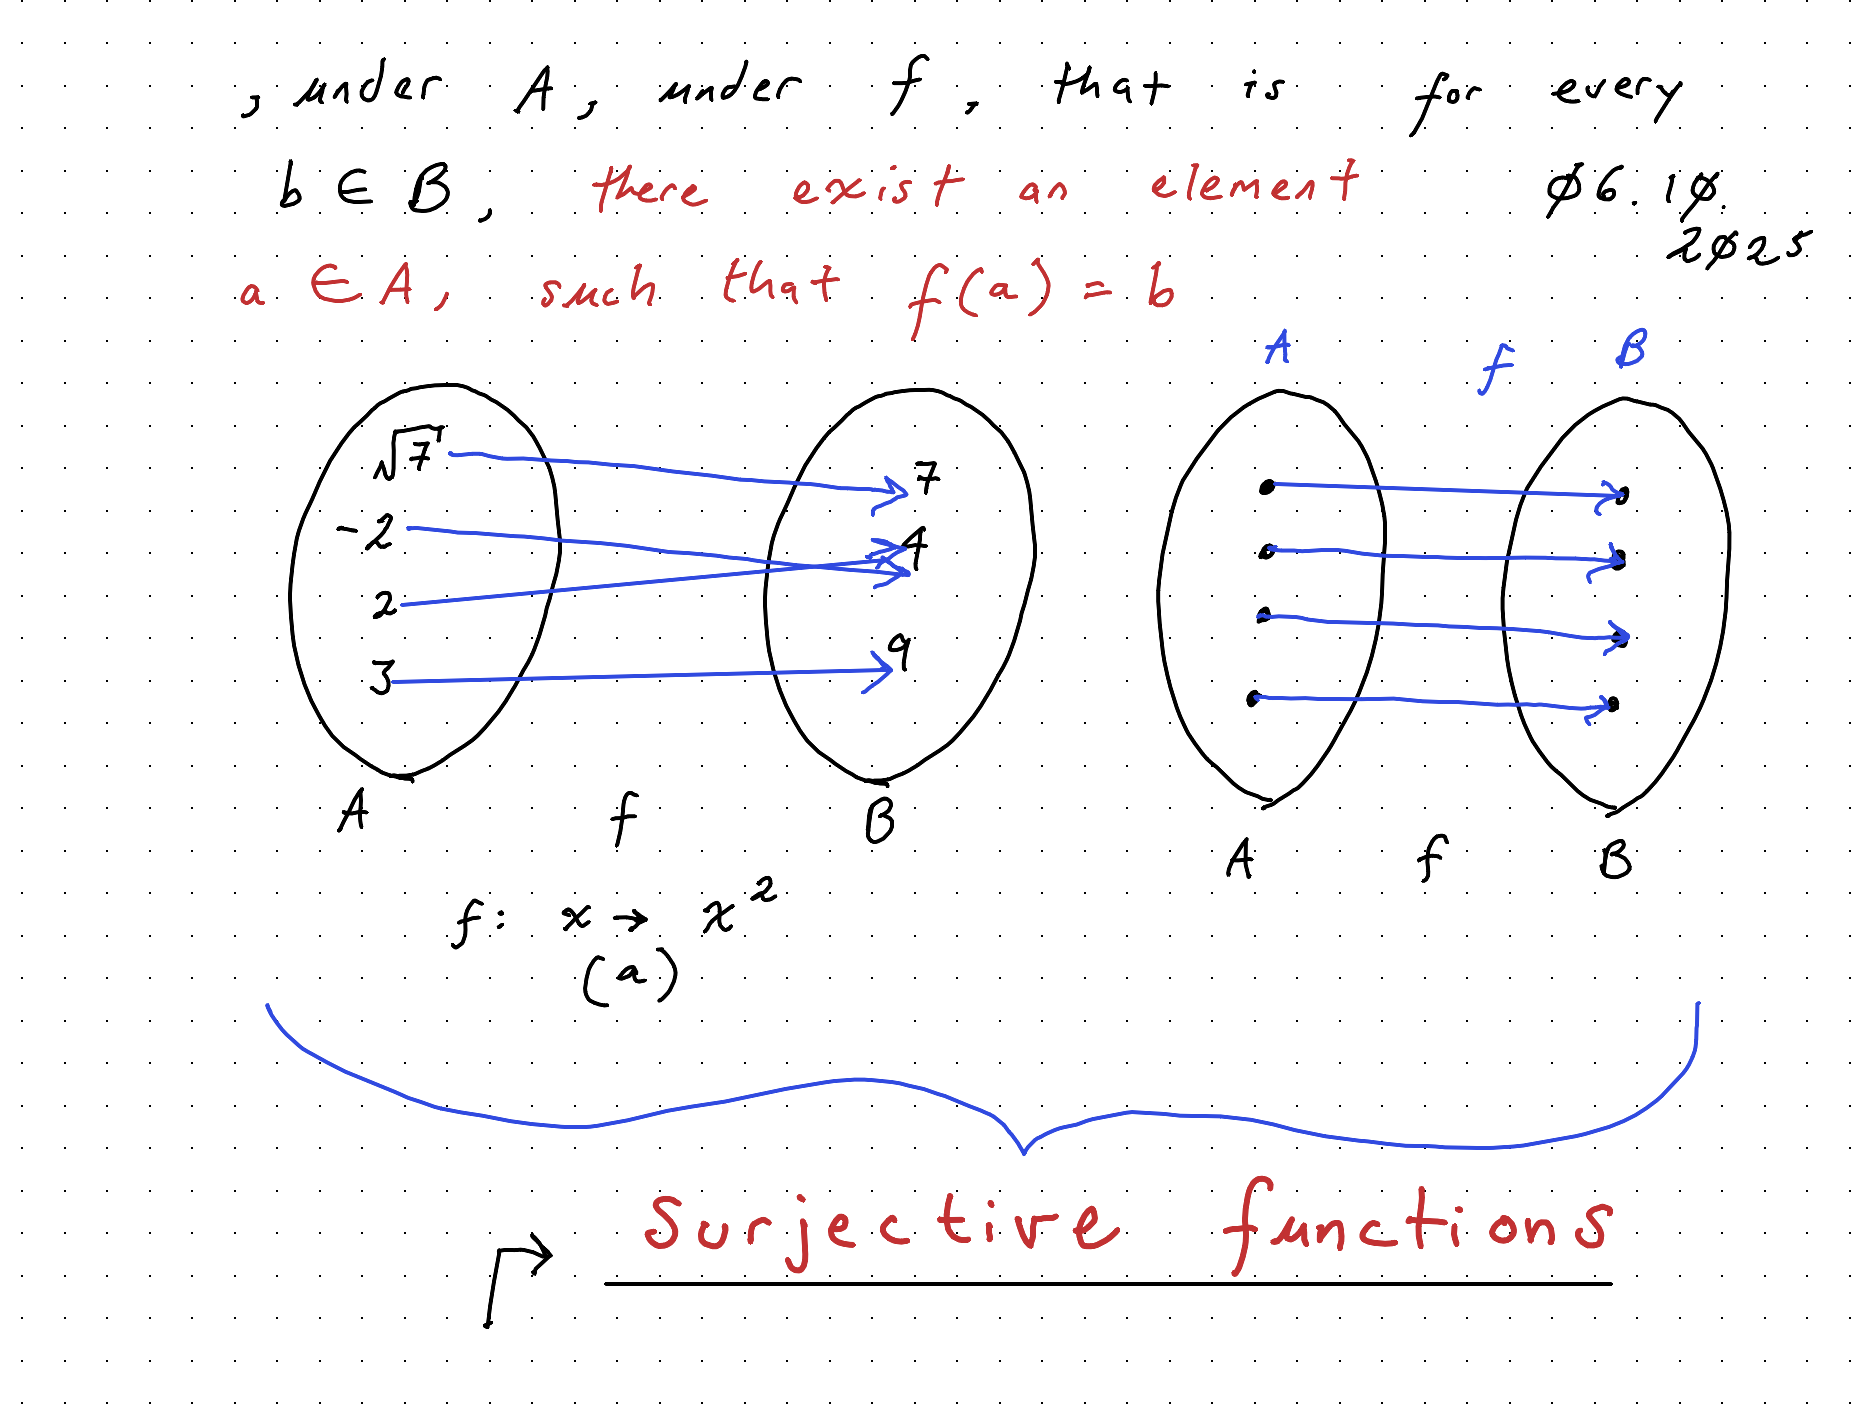 , under A, under f, that is for every
b ∈ B, there exist an element
ø6.1ø.
2ø25
a ∈ A, such that f(a) = b
A f B
√7 7
-2 4
2
3 9
A f B
A f B
f: x → x²
(a)
Surjective functions